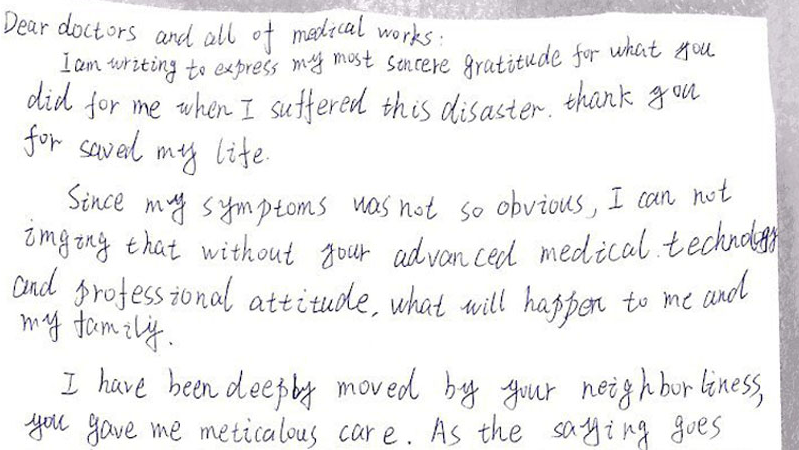 Dear doctors and all of medical works:
I am writing to express my most sencere gratitude for what you
did for me when I suffered this disaster. thank you
for saved my life.
Since my symptoms was not so obvious, I can not
imging that without your advanced medical technology
and professional attitude, what will happen to me and
my family.
I have been deeply moved by your neighborliness,
you gave me meticalous care. As the saying goes